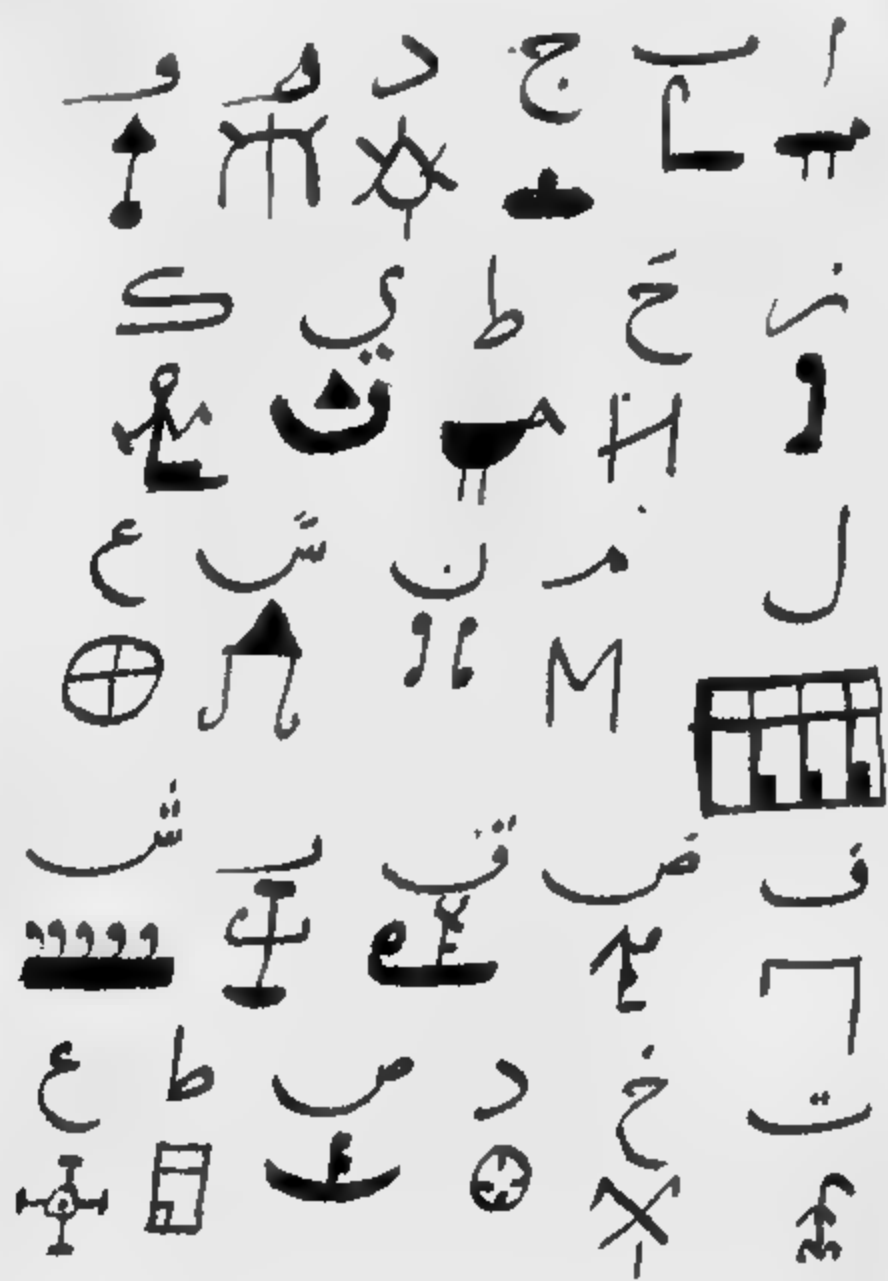 ا ب ج د ه و
ز ح ط ي ك
ل م ن س ع
ف ص ق ر ش
ت خ د ص ط ع